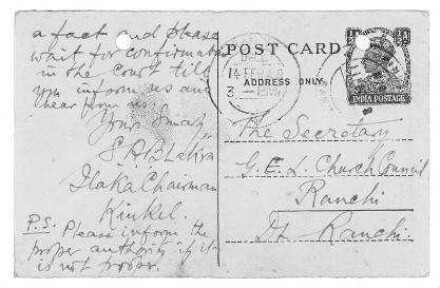 a fact and please
wait for confirmation
in the Court till
you inform us and
hear from us.
Your Smart,
Ilaka Chairman
Kinkel.
P.S. Please inform the
proper authority if it
is not proper.
POST CARD
ADDRESS ONLY
INDIA POSTAGE
The Secretary
G. E. L. Church Council
Ranchi
Dt Ranchi.